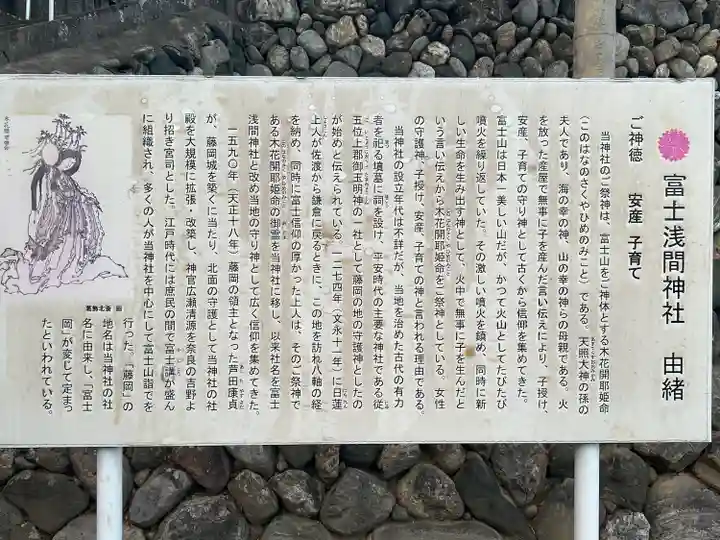 富士浅間神社 由緒
ご神徳 安産 子育て
当神社のご祭神は、富士山をご神体とする木花開耶姫命
(このはなのさくやひめのみこと)である。天照大神の孫の
夫人であり、海の幸の神、山の幸の神らの母親である。火
を放った産屋で無事に子を産んだ言い伝えにより、子授け、
安産、子育ての守り神として古くから信仰を集めてきた。
富士山は日本一美しい山だが、かつて火山としてたびたび
噴火を繰り返していた。その激しい噴火を鎮め、同時に新
しい生命を生み出す神として、火中で無事に子を生んだと
いう言い伝えから木花開耶姫命をご祭神としている。女性
の守護神、子授け、安産、子育ての神と言われる理由である。
当神社の設立年代は不詳だが、当地を治めた古代の有力
者を祀る墳墓に祠を設け、平安時代の主要な神社である従
五位上郡御玉明神の一社として藤岡の地の守護神としたの
が始めと伝えられている。一二七四年(文永十一年)に日蓮
上人が佐渡から鎌倉に戻るときに、この地を訪ね八軸の経
を納め、同時に富士信仰の厚かった上人は、そのご祭神で
ある木花開耶姫命の御霊を当神社に移し、以来社名を富士
浅間神社と改め当地の守り神として広く信仰を集めてきた。
一五九〇年(天正十八年)藤岡の領主となった芦田康貞
が、藤岡城を築くに当たり、北面の守護として当神社の社
殿を大規模に拡張、改築し、神官広瀬清源を奈良の吉野よ
り招き宮司とした。江戸時代には庶民の間で富士講が盛ん
に組織され、多くの人が当神社を中心にして富士山詣でを
行った。「藤岡」の
地名は当神社の社
名に由来し、「富士
岡」が変じて定まっ
たといわれている。
葛飾北斎 画